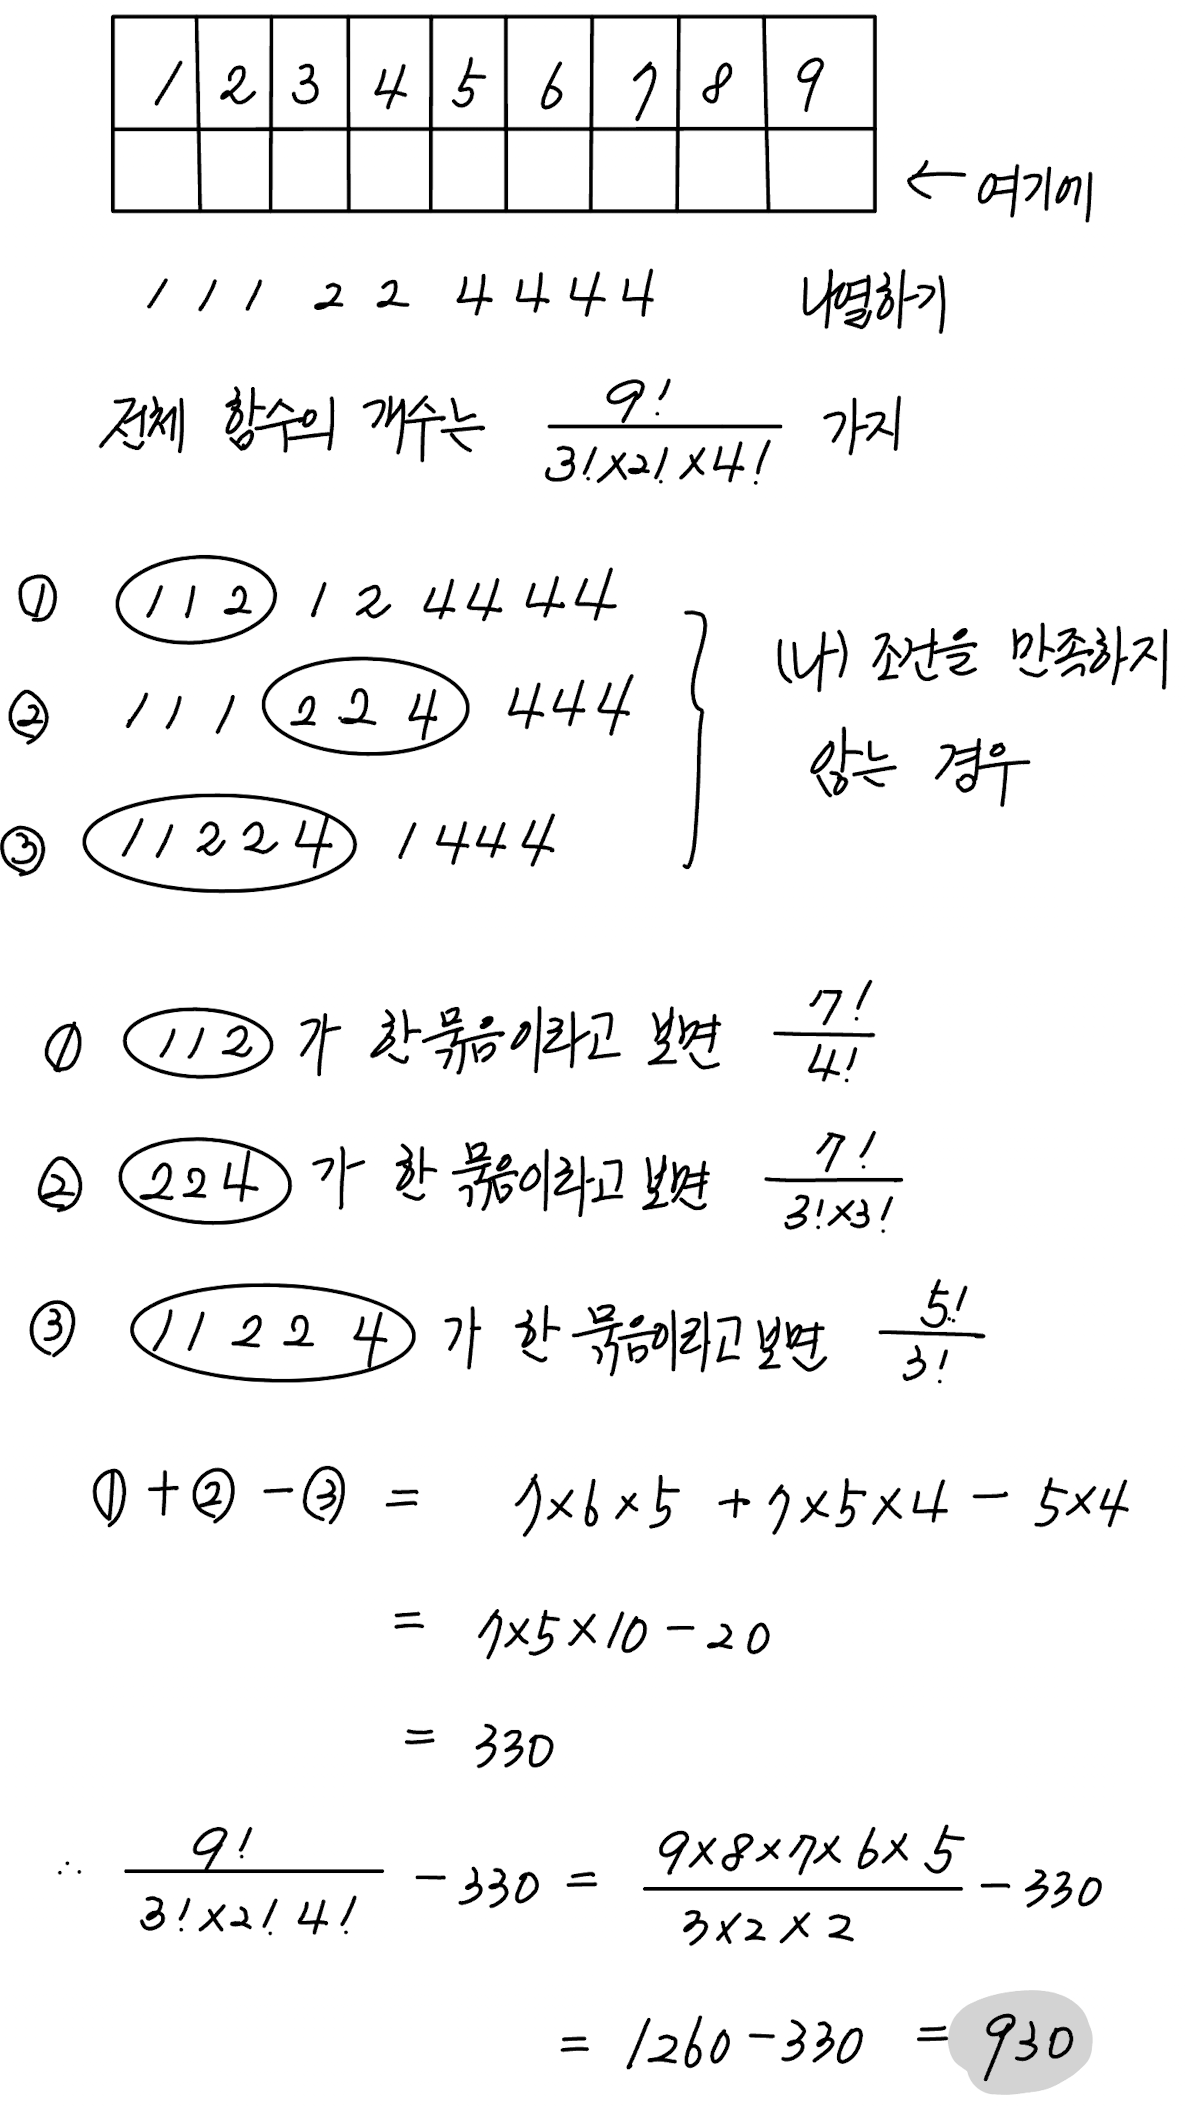 1 2 3 4 5 6 7 8 9
← 여기에
1 1 1 2 2 4 4 4 4 나열하기
전체 함수의 개수는 9! / 3!×2!×4! 가지
① 112 1 2 4444
② 111 224 444
③ 11224 1444
(나) 조건을 만족하지
않는 경우
① 112 가 한 묶음이라고 보면 7! / 4!
② 224 가 한 묶음이라고 보면 7! / 3!×3!
③ 11224 가 한 묶음이라고 보면 5! / 3!
①+②-③ = 7×6×5 + 7×5×4 - 5×4
= 7×5×10-20
= 330
∴ 9! / 3!×2!4! - 330 = 9×8×7×6×5 / 3×2×2 - 330
= 1260-330 = 930